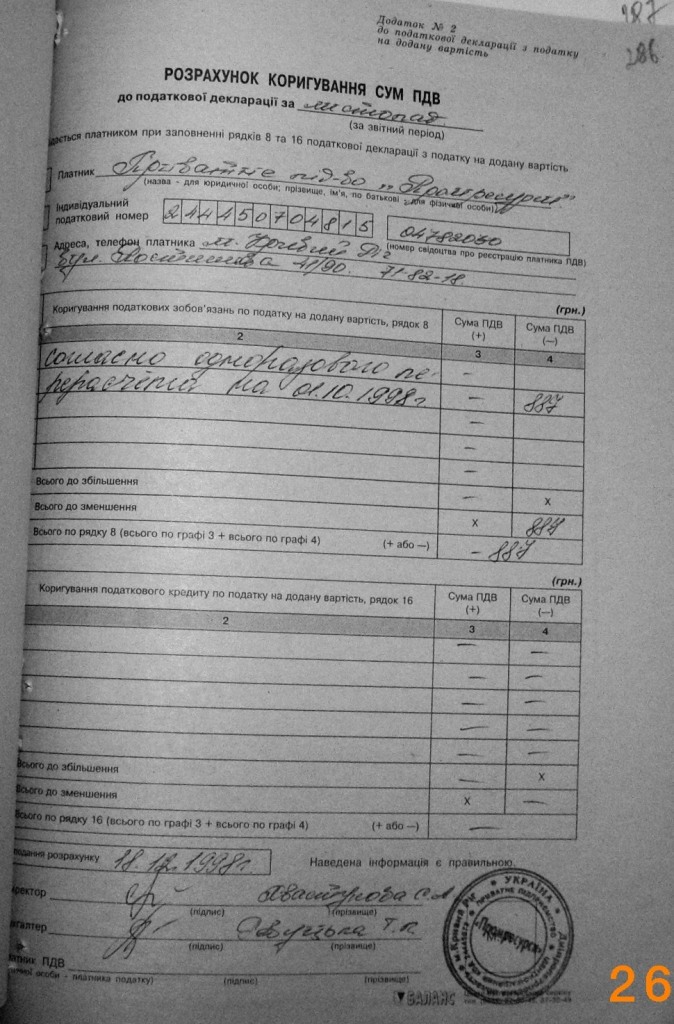 287
286
Додаток № 2
до податкової декларації з податку
на додану вартість
РОЗРАХУНОК КОРИГУВАННЯ СУМ ПДВ
до податкової декларації за листопад
(за звітний період)
платником при заповненні рядків 8 та 16 податкової декларації з податку на додану вартість
Платник Приватне під-во „Промресурси"
(назва - для юридичної особи; прізвище, ім'я, по батькові - для фізичної особи)
Індивідуальний
податковий номер 244450704815 04782030
(номер свідоцтва про реєстрацію платника ПДВ)
Адреса, телефон платника м. Кривий Ріг
бул. 41/90. 71-82-18
(грн.)
Коригування податкових зобов'язань по податку на додану вартість, рядок 8 Сума ПДВ (+) Сума ПДВ (—)
2 3 4
согласно одноразового пе- —
рерасчёта на 01.10.1998г. — 887
—
—
Всього до збільшення — X
Всього до зменшення X 887
Всього по рядку 8 (всього по графі 3 + всього по графі 4) (+ або —) - 887
(грн.)
Коригування податкового кредиту по податку на додану вартість, рядок 16 Сума ПДВ (+) Сума ПДВ (—)
2 3 4
— —
— —
— —
— —
— —
Всього до збільшення — X
Всього до зменшення X —
Всього по рядку 16 (всього по графі 3 + всього по графі 4) (+ або —) —
подання розрахунку 18.12.1998г. Наведена інформація є правильною.
иректор С.А.
(підпис) (прізвище)
галтер Т.
(підпис) (прізвище)
атник ПДВ
ичної особи - платника податку) (підпис) (прізвище)
УКРАЇНА
ПРИВАТНЕ ПІДПРИЄМСТВО
м.Кривий Ріг
«Промресурси»
БАЛАНС
26